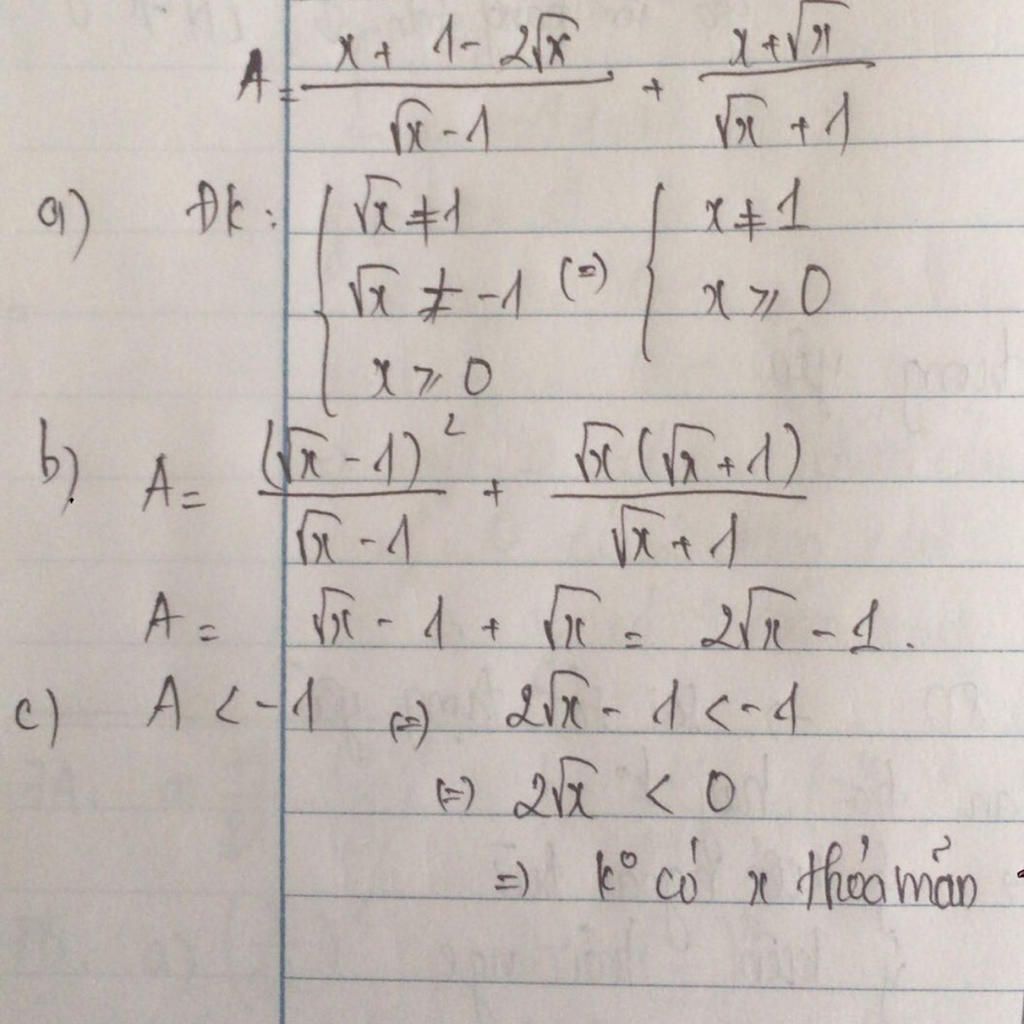 A = (x + 1 - 2√x)/(√x - 1) + (x + √x)/(√x + 1)
a) ĐK: { √x ≠ 1 ; √x ≠ -1 ; x ≥ 0 (=) { x ≠ 1 ; x ≥ 0
b) A = (√x - 1)²/(√x - 1) + √x(√x + 1)/(√x + 1)
A = √x - 1 + √x = 2√x - 1.
c) A < -1 (=) 2√x - 1 < -1
(=) 2√x < 0
=) k° có x thỏa mãn